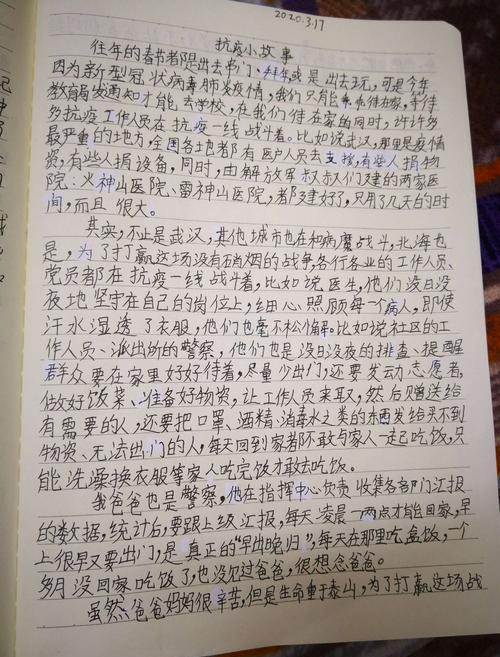 2020.3.17
抗疫小故事
往年的春节都是出去串门、拜年或是出去玩，可是今年
因为新型冠状病毒肺炎疫情，我们只能乖乖待在家，等待
教育局发通知才能去学校，在我们待在家的同时，许许多
多抗疫工作人员在抗疫一线战斗着。比如说武汉，那里是疫情
最严重的地方，全国各地都有医护人员去支援，有些人捐物
资，有些人捐设备，同时，由解放军叔叔们建的两家医
院：火神山医院、雷神山医院，都建好了，只用了几天的时
间，而且很大。
其实，不止是武汉，其他城市也在和病魔战斗，北海也
是，为了打赢这场没有硝烟的战争，各行各业的工作人员、
党员都在抗疫一线战斗着，比如说医生，他们没日没
夜地坚守在自己的岗位上，细心照顾每一个病人，即使
汗水湿透了衣服，他们也毫不松懈。比如说社区的工
作人员、派出所的警察，他们也是没日没夜的排查、提醒
群众要在家里好好待着，尽量少出门，还要发动志愿者，
做好饭菜、准备好物资，让工作人员来取，然后赠送给
有需要的人，还要把口罩、酒精、消毒水之类的东西发给买不到
物资、无法出门的人，每天回到家都不敢与家人一起吃饭，只
能洗澡换衣服等家人吃完饭才敢去吃饭。
我爸爸也是警察，他在指挥中心负责收集各部门汇报
的数据，统计后，要跟上级汇报，每天凌晨一两点才能回家，早
上很早又要出门，是真正的“早出晚归”，每天在那里吃盒饭，一个
多月没回家吃饭了，也没见过爸爸，很想念爸爸。
虽然爸爸妈妈很辛苦，但是生命重于泰山，为了打赢这场战